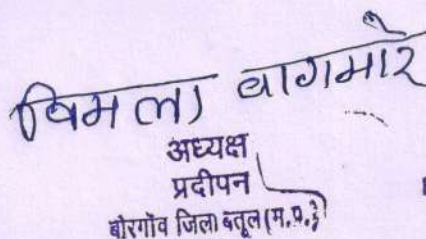 विमला वागमारे
अध्यक्ष
प्रदीपन
बोरगॉव जिला बैतूल (म.प्र.)